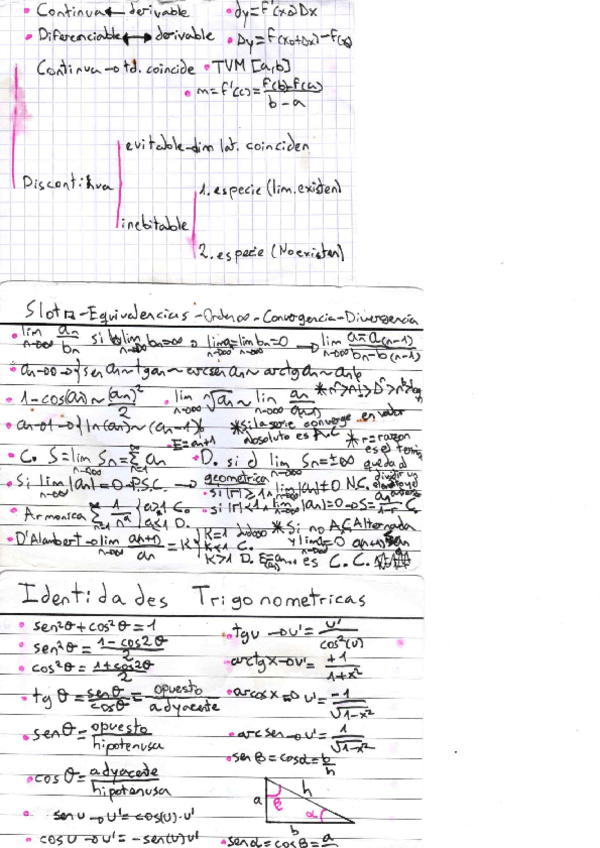 • Continua ← derivable • dy=F'(x₀)Dx
• Diferenciable ↔ derivable • Dy=F(x₀+Dx)-F(x₀)
Continua → td. coincide • TVM [a,b]
• m=F'(c)=F(b)-F(a)/b-a
evitable → lim lat. coinciden
Discontinua
1. especie (lim. existen)
inebitable
2. especie (No existen)
Equivalencias - Ordenes - Convergencia - Divergencia
lim n→∞ an/bn si lim n→∞ bn=∞ o lim n→∞ an=lim n→∞ bn=0 → lim n→∞ an-a(n-1)/bn-b(n-1)
• an→0→{sen an~tg an~arcsen an~arctg an~an
• 1-cos(an)~(an)²/2 • lim n→∞ ⁿ√an~lim n→∞ an/a(n-1)
• an→1→{ln(an)~(an-1) * Si la serie converge en valor
absoluto es A.C * r=razon
• C. S=lim n→∞ Sn=∑ n=1 ∞ an • D. si lim n→∞ Sn=±∞
• Si lim n→∞ |an|=0 P.S.C. → geometrica
• Si |r|≥1 lim n→∞ |an|≠0 N.C.
• Si |r|<1 lim n→∞ |an|=0→S=
• Armonica ∑ n=1 ∞ 1/nᵃ {a>1 C. a≤1 D.
* Si no AC Alternada
• D'Alambert → lim n→∞ an+1/an=K {K=1 dudoso
K<1 C.
K>1 D. es C.C.
Identidades Trigonometricas
• sen²θ+cos²θ=1 • tg u→u'=u'/cos²(u)
• sen²θ=1-cos2θ/2
• cos²θ=1+cos2θ/2 • arctg x→u'=+1/1+x²
• tg θ=senθ/cosθ=opuesto/adyacente • arcos x→u'=-1/√1-x²
• senθ=opuesto/hipotenusa • arcsen→u'=1/√1-x²
• sen β=cosα=b/h
• cosθ=adyacente/hipotenusa
a β h α
b
• sen u→u'=cos(u)·u'
• cos u→u'=-sen(u)u' • senα=cosβ=a